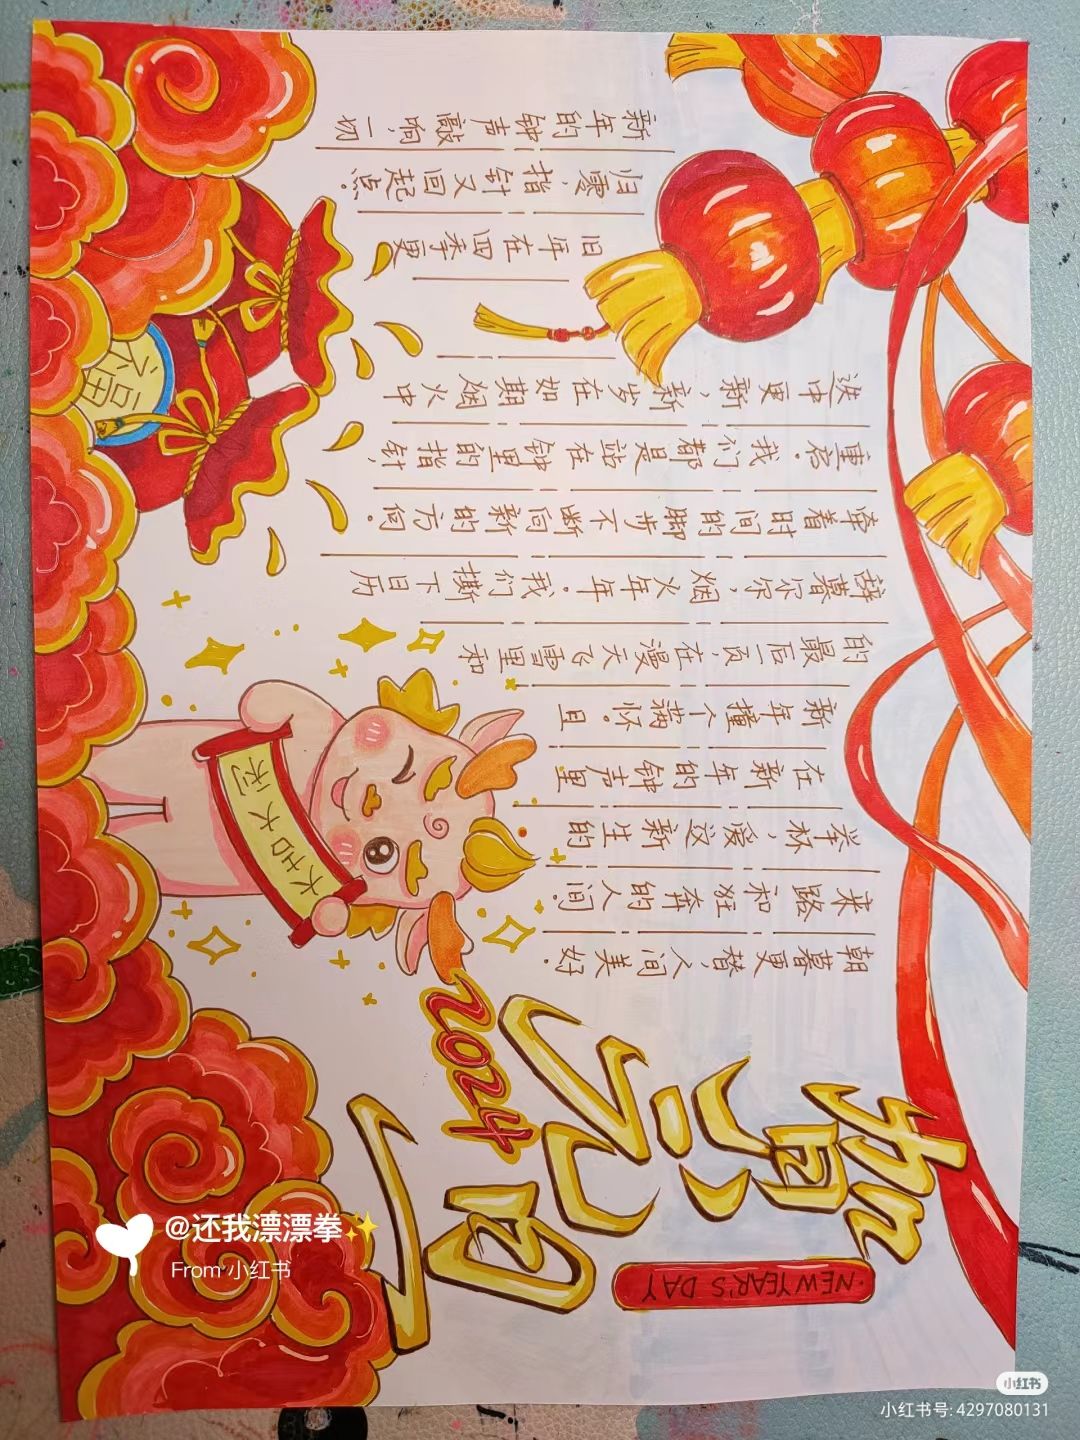 贺元旦
·NEW YEAR'S DAY
2024
新年的钟声敲响,一切
归零,指针又回起点.
旧年在四季更
迭中更新,新岁在如期烟火中
重启.我们都是站在钟里的指针,
牵着时间的脚步不断向新的方向.
辞暮尔尔,烟火年年.我们撕下日历
的最后一页,在漫天飞雪里和
新年撞个满怀.且
在新年的钟声里
举杯,爱这新生的
来路和狂奔的人间.
朝暮更替,人间美好.
福
大吉大利
@还我漂漂拳✨
From 小红书
小红书
小红书号: 4297080131